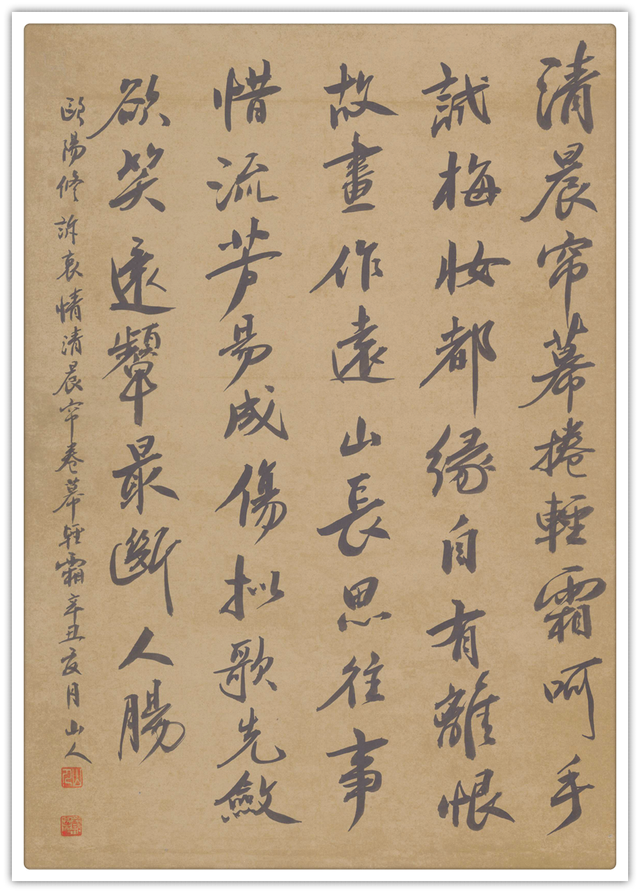 清晨帘幕捲輕霜呵手
試梅妆都緣自有離恨
故畫作遠山長思往事
惜流芳易成傷拟歌先斂
欲笑還顰最斷人腸
歐陽修訴衷情清晨帘卷幕輕霜辛丑夏月山人